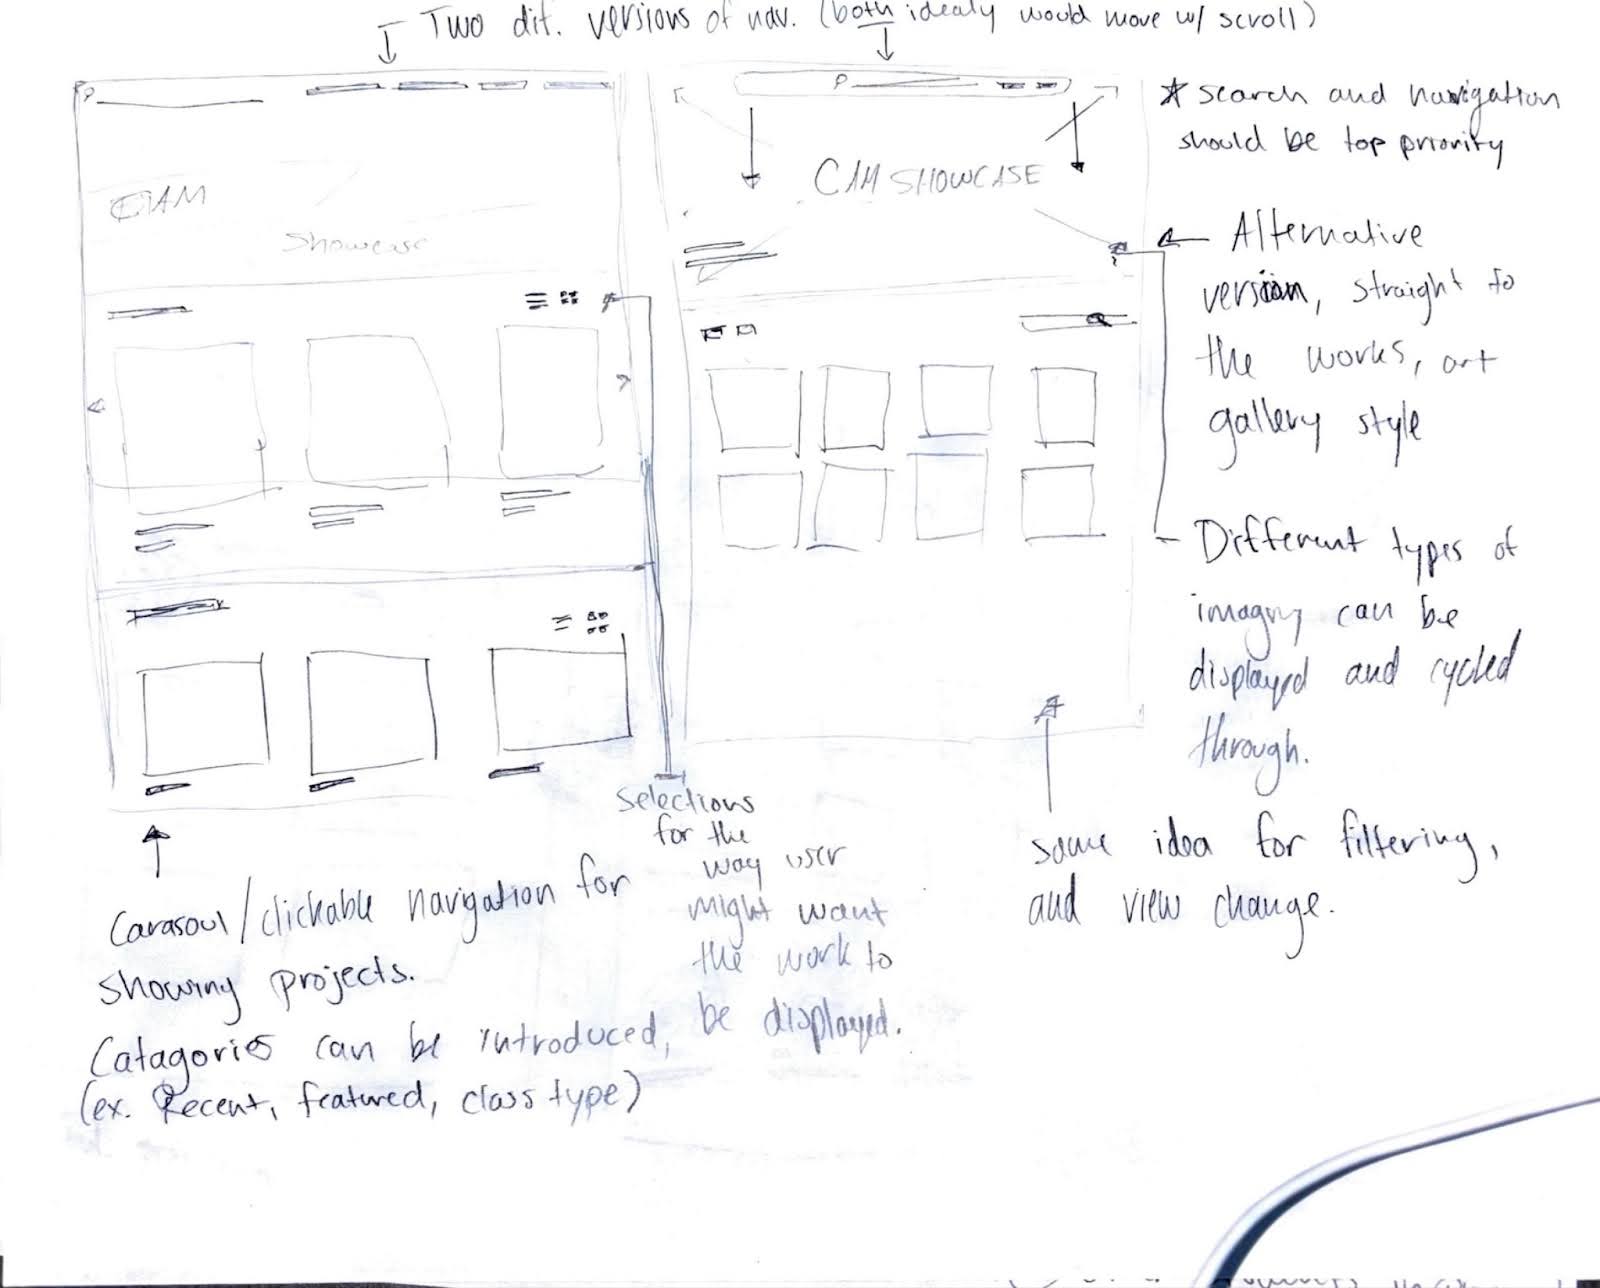 Two dif. versions of nav. (both idealy would move w/ scroll)
CAM
Showcase
CAM SHOWCASE
* search and navigation
should be top priority
Alternative
version, straight to
the works, art
gallery style
Different types of
imagry can be
displayed and cycled
through.
same idea for filtering,
and view change.
Selections
for the
way user
might want
the work to
be displayed.
Carasoul/clickable navigation for
showing projects.
Catagories can be introduced,
(ex. Recent, featured, class type)